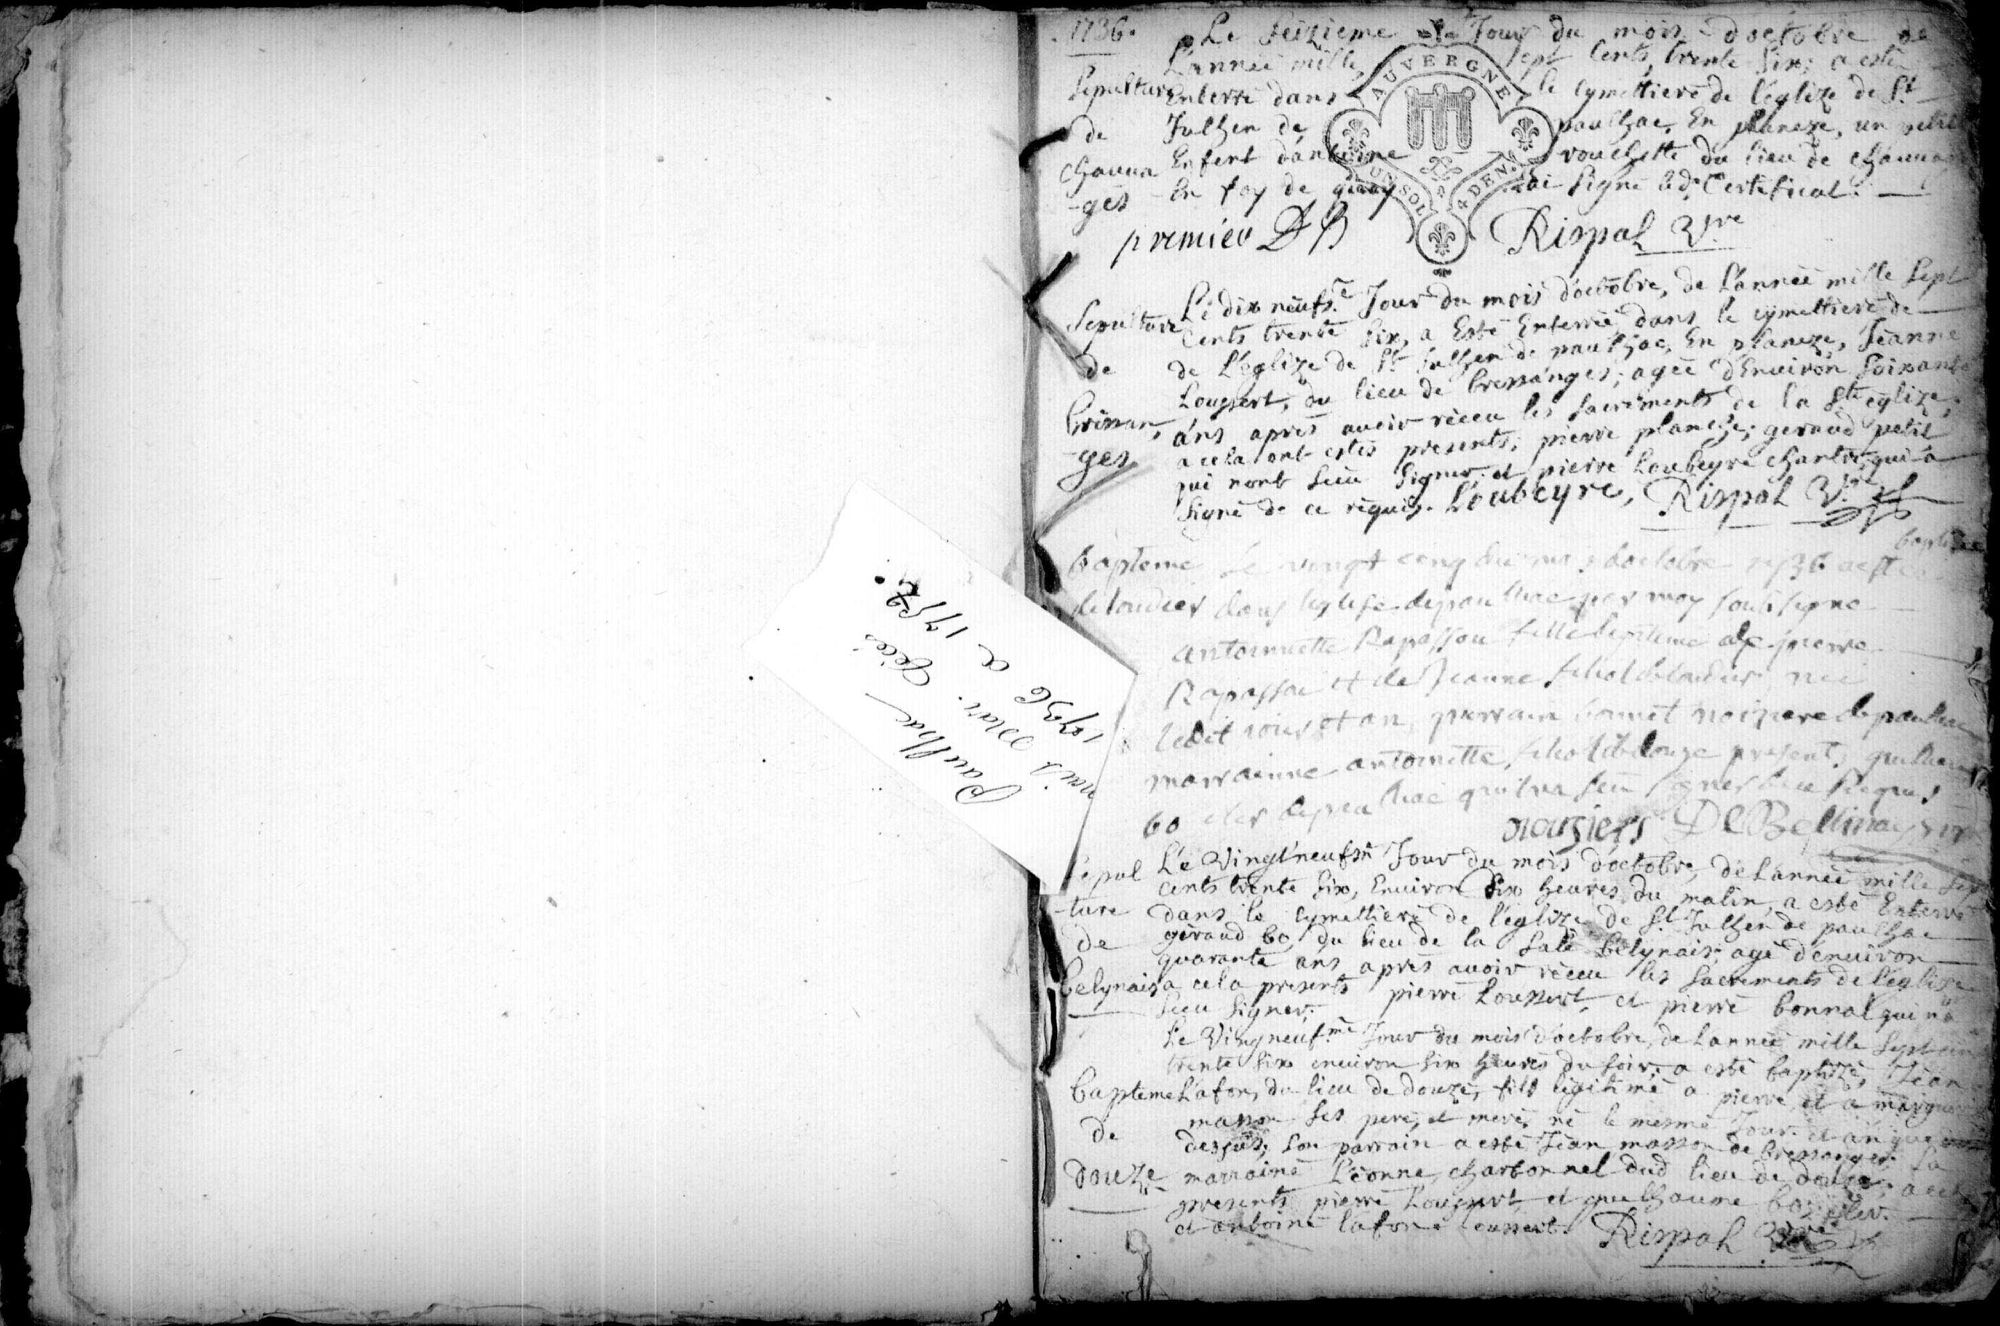 Paulhac
mais
1736 a 1752.
1736. Le seizieme Jour du mois d'octobre de
L'année mille sept Cents trente Six; a esté
Sepulture Enterré dans le cymettiere de l'eglize de St
de Julhen de paulhac, En planeze, un petit
chauua Enfent d'antoine vouchette du lieu de chauua
-ges En foy de quoy J'ai Signé led. Certificat.
premier Rispal Vre
AUVERGNE
UN SOL 4 DEN.
Le dix neufe. Jour du mois d'octobre, de L'année mille Sept
Sepulture Cents trente Six, a Esté Enterrée, dans le cymettiere de
de de L'eglize de St Julhen de paulhac, En planeze, Jeanne
Loussert, du lieu de bressanges; agée d'Enuiron Soixante
brissan, ans apres auoir receu les Sacrements de la Ste eglize;
-ges a cela ont estés presents; pierre planche; geraud petit
qui n'ont Sceu Signer, et pierre Loubeyre chantre, qui a
Signé de ce requis. Loubeyre, Rispal Vre
baptisée
bapteme Le vingt cinq du mois d'octobre 1736 a esté
de loudier dans leglise de paulhac par moy soubsigné
antoinette Rapassou fille legitime de pierre
Rapassou et de Jeanne filiol de loudier, née
ledit jour et an, parrain bonnet noizere de paulhac
marrainne antoinette filiol de douze present,
bo cler de paulhac qui na seu signer de ce requis
nozieres De Bellinay
Sepul Le Vingt'neufsm Jour du mois d'octobre, de L'année mille Sept
-ture cents trente Six, Enuiron Six heures du matin, a esté Enterré
dans le cymettiere de l'eglize de St Julhen de paulhac
de geraud bo, du lieu de la Sale belynais; agé d'enuiron
quarante ans apres auoir receu les Sacrements de l'eglize
belynais a cela presents pierre Loussert, et pierre bonnal qui n'a
Sceu Signer;
Le Vingneufme Jour du mois d'octobre, de L'année mille Sept cens
trente Six enuiron Six heures du Soir, a esté baptizé, Jean
bapteme Lafon, du lieu de douze, fils legitime a pierre, et a margue
de masson Ses pere, et mere, né le mesme Jour et an que
dessus; Son parrain a esté Jean masson de bressanges La
douze marraine Léonne, charbonnel dud lieu de douze; a cela
presents pierre Loussert, et guilhaume bo, cler.
et antoine lafon Loussert. Rispal Vre